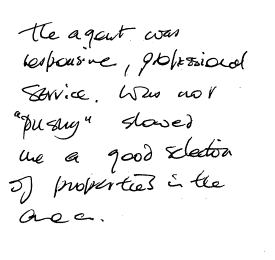 The agent was
responsive, professional
service. Was not
"pushy" showed
me a good selection
of properties in the
area.